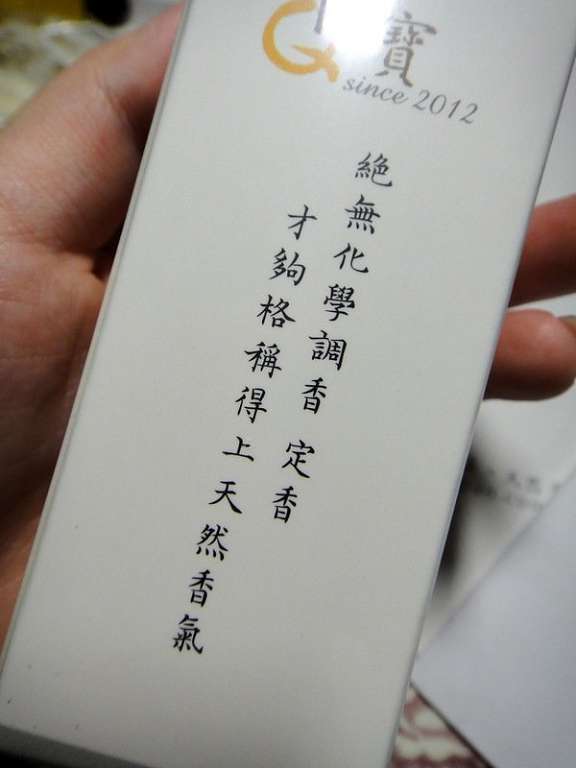 寶
since 2012
絕無化學調香 定香
才夠格稱得上天然香氣